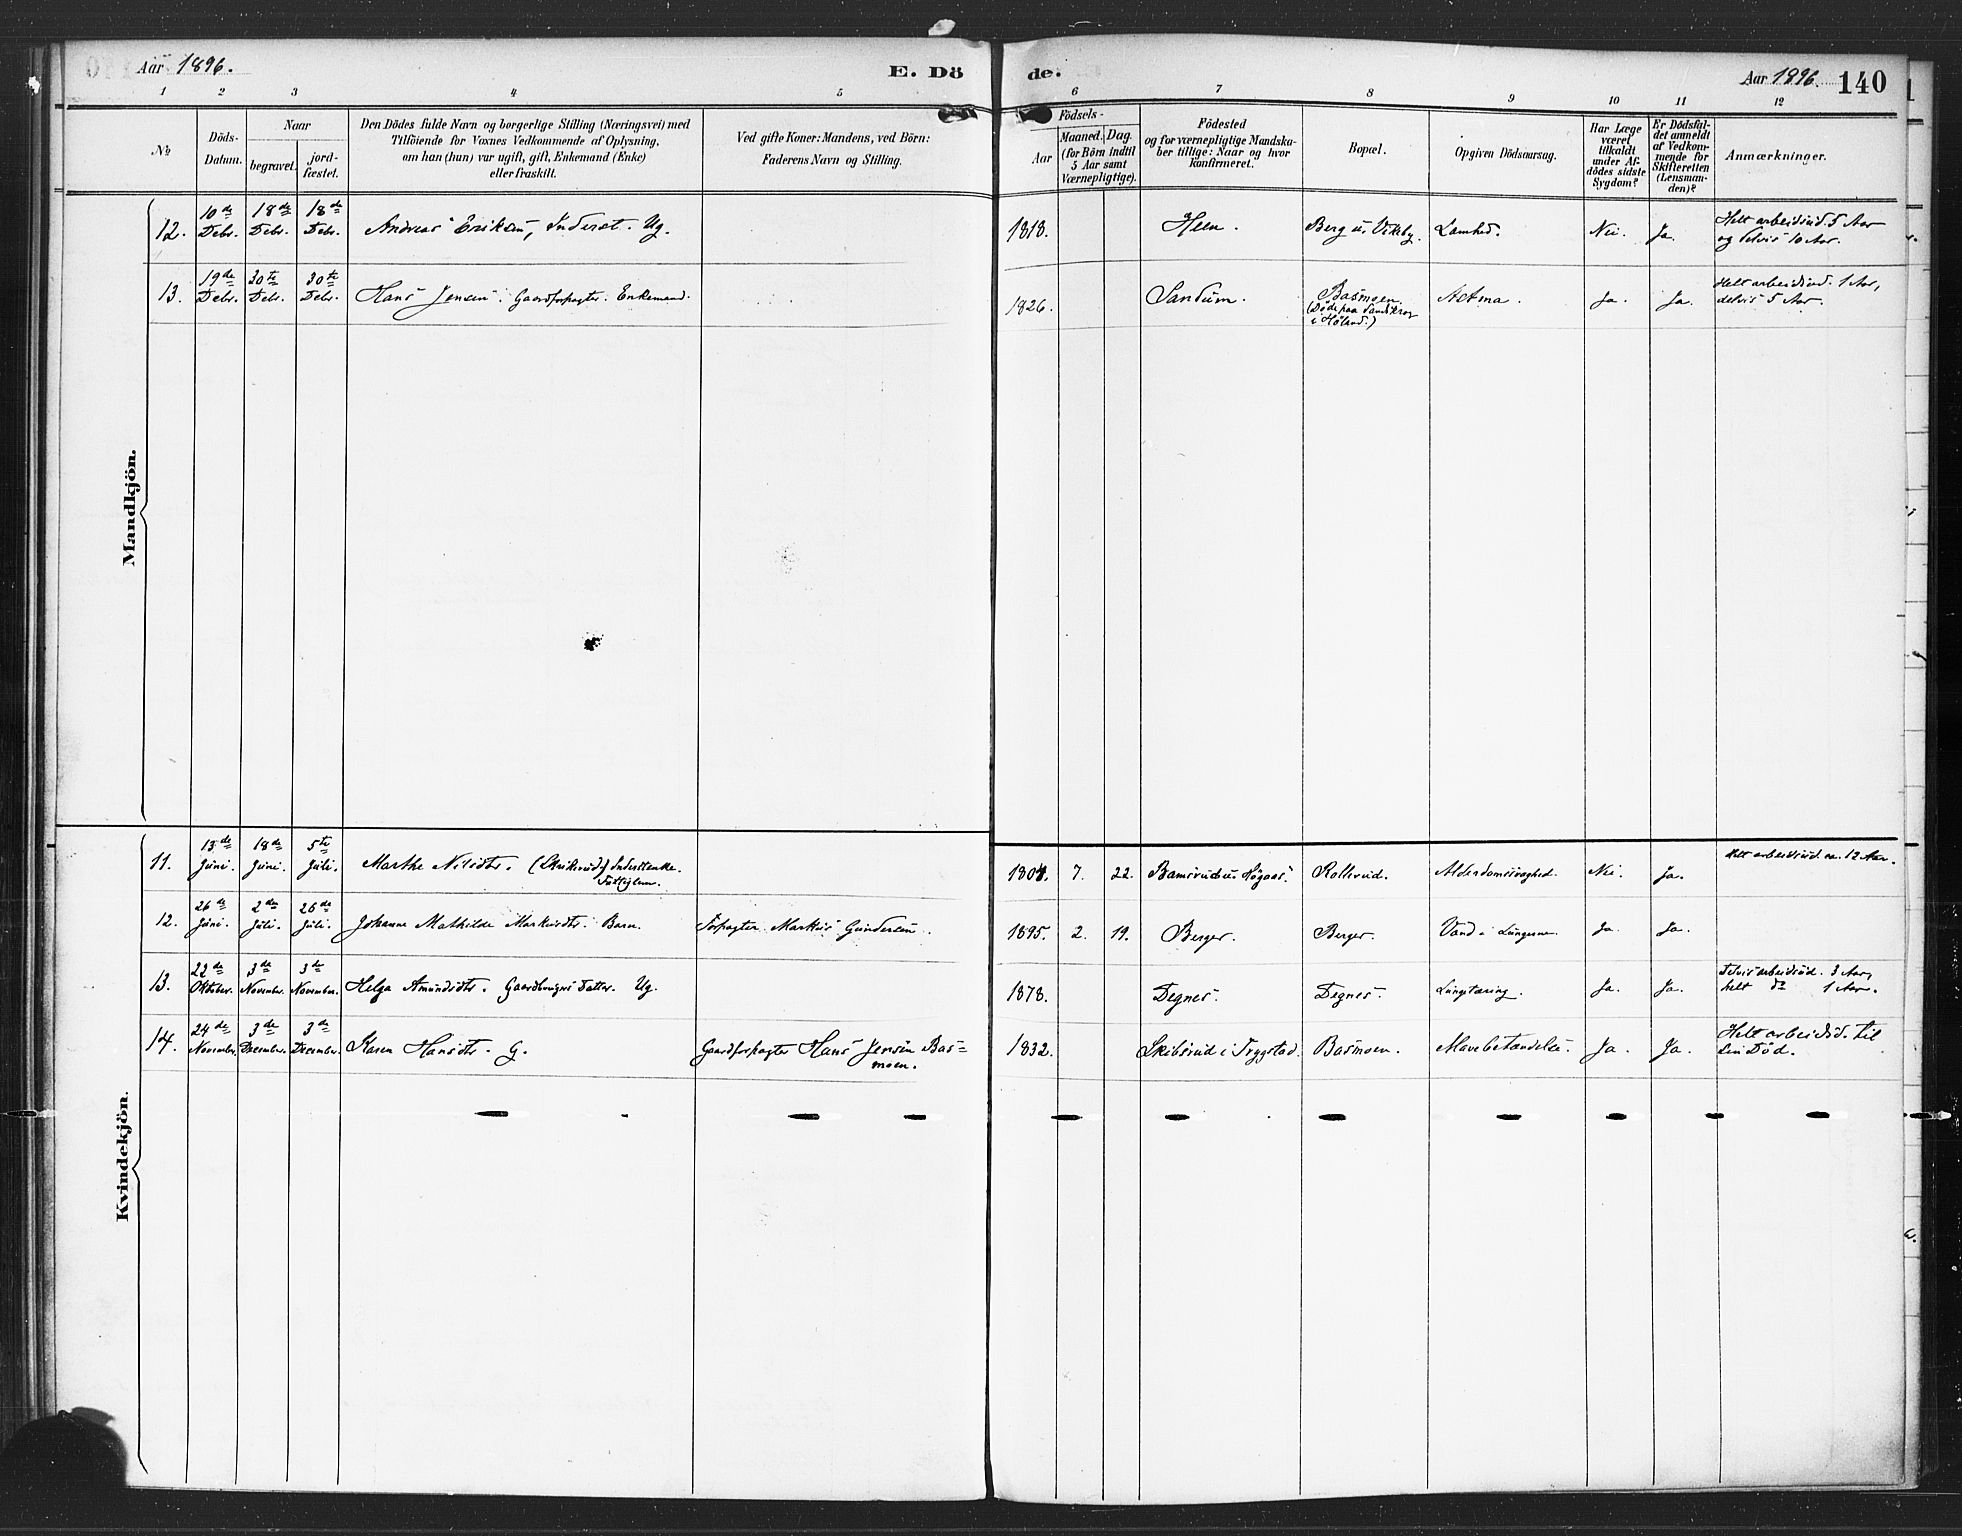 Aar 1896.
E. Dö
de.
Aar 1896.
140
1 2 3 4 5 6 7 8 9 10 11 12
№
Döds-
Datum.
Naar
begravet.
jord-
fæstet.
Den Dödes fulde Navn og borgerlige Stilling (Næringsvei) med
Tilföiende for Voxnes Vedkommende af Oplysning,
om han (hun) var ugift, gift, Enkemand (Enke)
eller fraskilt.
Ved gifte Koner: Mandens, ved Börn:
Faderens Navn og Stilling.
Födsels-
Aar
Maaned.
Dag.
(for Börn indtil
5 Aar samt
Værnepligtige).
Födested
og for værnepligtige Mandska-
ber tillige: Naar og hvor
konfirmeret.
Bopæl.
Opgiven Dödsaarsag.
Har Læge
været
tilkaldt
under Af-
dödes sidste
Sygdom?
Er Dödsfal-
det anmeldt
af Vedkom-
mende for
Skifteretten
(Lensman-
den)?
Anmærkninger.
Mandkjön.
12. 10de Debr. 18de Debr. 18de Debr. Andreas Eriksen, Inderst. Ug. 1818. Heen. Berg u. Vikeby. Lamhed. Nei. Ja. Helt arbeidsud. 5 Aar
og delvis 10 Aar.
13. 19de Debr. 30te Debr. 30te Debr. Hans Jensen. Gaardforpagter. Enkemand. 1826. Sandum. Basmoen. Astma. Ja. Ja. Helt arbeidsud. 1 Aar,
(Döde paa
i Höland.)
delvis 5 Aar.
Kvindekjön.
11. 13de Juni. 18de Juni. 5te Juli. Marthe Nilsdtr. Inderstenke. 1801. 7. 22. Rollerud. Alderdomssvaghed. Nei. Ja. Helt arbeidsud. ca. 12 Aar.
Fattiglem.
12. 26de Juni. 2den Juli. 26de Juli. Johanne Mathilde Markusdtr. Barn. Forpagter Markus Gundersen. 1895. 2. 19. Berger. Berger. Vand i Lungerne. Ja. Ja.
13. 22de Oktober. 3de November. 3de November. Helga Amundsdtr. Gaardbrugers Datter. Ug. 1878. Degnes. Degnes. Lungetæring. Ja. Ja. Delvis arbeidsud. 3 Aar,
helt do 1 Aar.
14. 24de November. 3de December. 3de December. Karen Hansdtr. G. Gaardforpagter Hans Jensen Bas-
moen.
1832. Skibsrud i Trygstad. Basmoen. Mavebetændelse. Ja. Ja. Helt arbeidsd. til
sin Död.